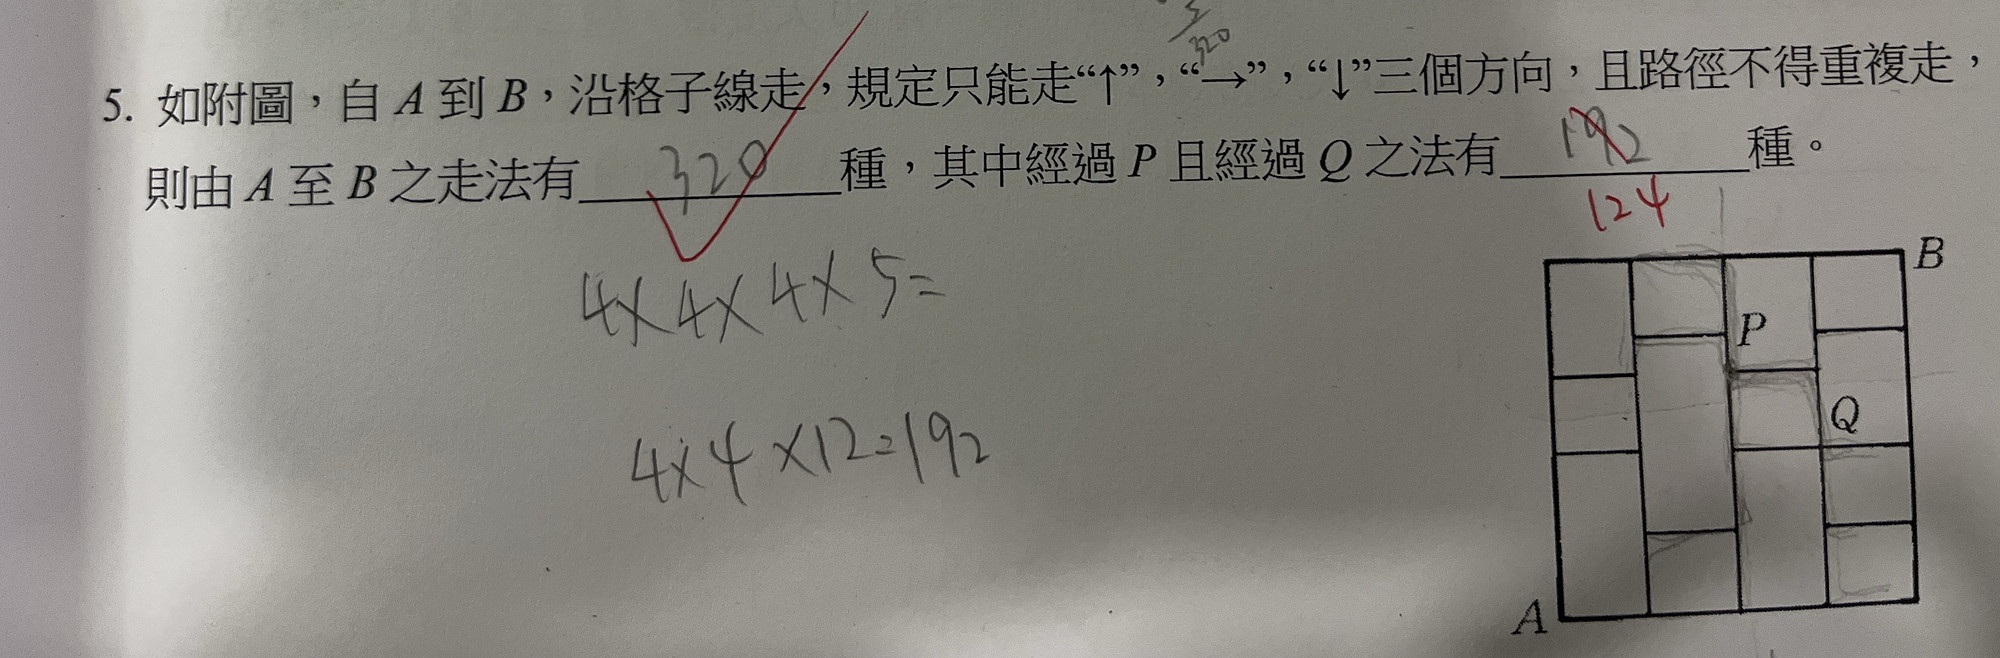 320
5. 如附圖，自 A 到 B，沿格子線走，規定只能走“↑”，“→”，“↓”三個方向，且路徑不得重複走，
則由 A 至 B 之走法有 320 種，其中經過 P 且經過 Q 之法有 192 種。
124
4×4×4×5=
4×4×12=192
B
P
Q
A